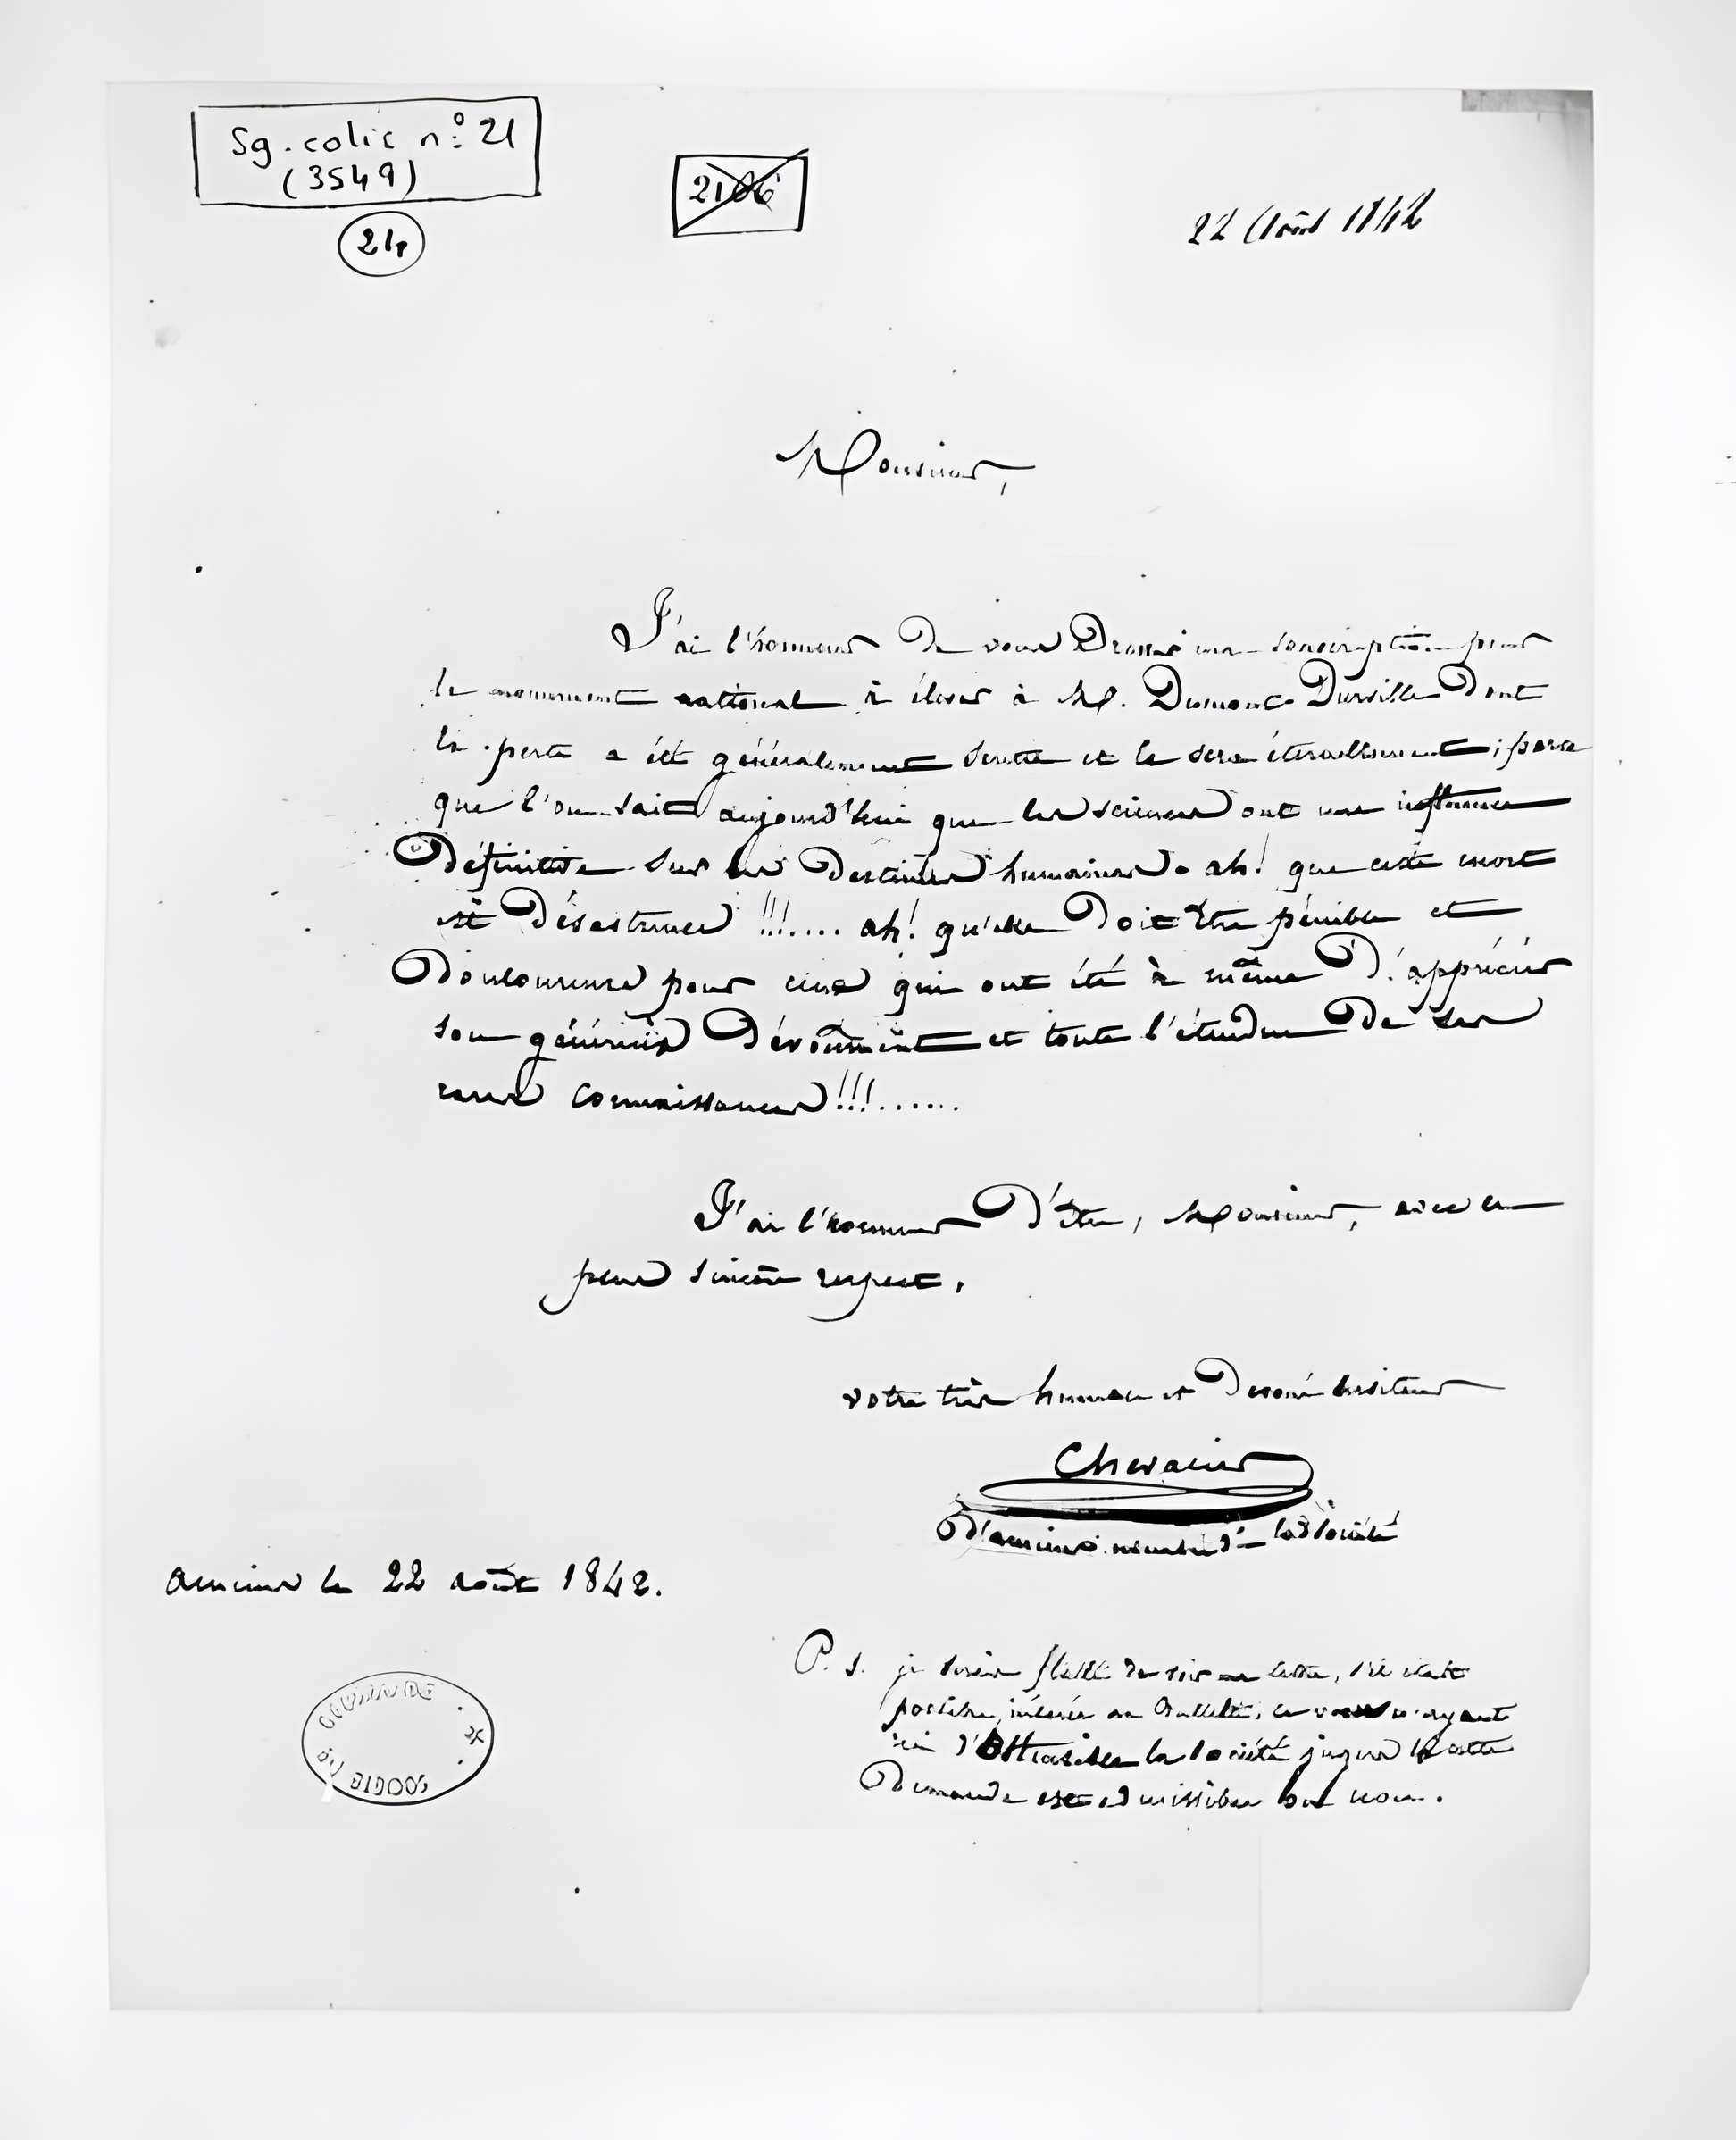 Sg. colis n° 21
(3549)
2106
22 Août 1842
Monsieur,
J'ai l'honneur De vous Dresser ma souscription pour
le monument national à élever à M. Dumont Durville Dont
la perte a été généralement sentie et le sera éternellement ; parce
que l'on sait aujourd'hui que les sciences ont une influence
Définitive sur les Destinées humaines. ah! que cette mort
est Désastreuse !!!.... ah! qu'elle Doit être pénible et
Douloureuse pour ceux qui ont été à même D'apprécier
son généreux Dévoûment et toute l'étendue De ses
rares connaissances !!!......
J'ai l'honneur D'être, Monsieur, avec le
plus sincère respect,
votre très humble et Dévoué serviteur
Chevalier
D'amiens membre De la Société
amiens le 22 août 1842.
P. S. je serais flatté De voir ma lettre, s'il était
possible, insérée au Bulletin, ce vœu n'ayant
rien D' la Société jugera si cette
Demande est admissible ou non.
SOCIÉTÉ DE